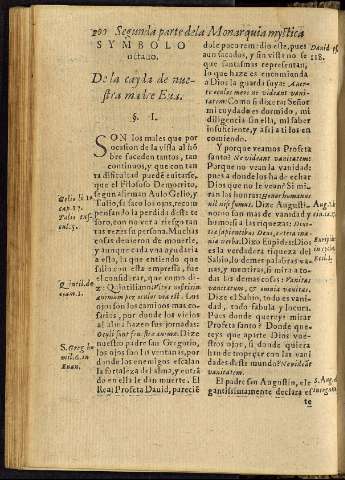 200 Segunda parte de la Monarquia mystica
SYMBOLO
octauo.
De la cayda de nue-
stra madre Eua.
§. I.
SON los males que por
ocasion de la vista al hõ
bre suceden tantos, tan
continuos, y que con tan
ta dificultad puedẽ euitarse,
que el Filosofo Democrito,
segun afirman Aulo Gelio, y
Tulio, se saco los ojos, recom
pensando la perdida deste te
soro, con no ver a riesgo tan
tas vezes su persona. Muchas
cosas dexaron de mouerle,
y aunque cada vna ayudaria
a esta, la que entiendo que
salio con esta empressa, fue
el considerar, que como di-
ze Quintiliano: Vitijs
animum per oculos via est. Los
ojos son los caminos mas co-
sarios, por donde los vicios
al alma hazen sus jornadas:
Oculi sunt fenestra animæ. Dize
nuestro padre san Gregorio,
los ojos son las vẽtanas, por
donde los enemigos escalan
la fortaleza del alma, y entrã
do en ella le dan muerte. El
Real Profeta Dauid, pareciẽ
Gelio li. 10.
cap. 17.
Tulio
Quintil. de
S. Greg. ho
mil.
Euan.
dole poco remedio este, pues
aun sacados, y sin vista no se
que fantasmas representan,
lo que haze es encomienda
a Dios la guarda suya: Auer-
te oculos meos ne videant vani-
tatem: Como si dixera: Señor
mi cuydado es dormido, mi
diligencia sin ella, mi saber
insuficiente, y assi a ti los en
comiendo.
Y porque veamos Profeta
santo? Ne videant vanitatem:
Porque no vean la vanidad:
pues a donde los ha de echar
Dios que no le vean? Si mi-
ran los honres:
nil nisi fumus. Dize Augusti-
no no son mas de vanidad y
humo: si a las riquezas:
tia
nia Dixo Eupides: Dios
es la verdadera riqueza del
Sabio, lo demas palabras va-
nas, y mentiras, si mira a to-
das las demas cosas: Vanitas
vanitatum, & omnia vanitas.
Dize el Sabio, todo es vani-
dad, todo fabula y locura.
Pues donde quereys mirar
Profeta santo? Donde que-
reys que aparte Dios vue-
stros ojos, si donde quiera
han de tropeçar con las vani
dades deste mundo? Ne videãt
vanitatem.
El padre san Augustin, ele
gantissimamente declara es
te
Dauid
118.
Aug.
Eccl. 1.
S. Aug.